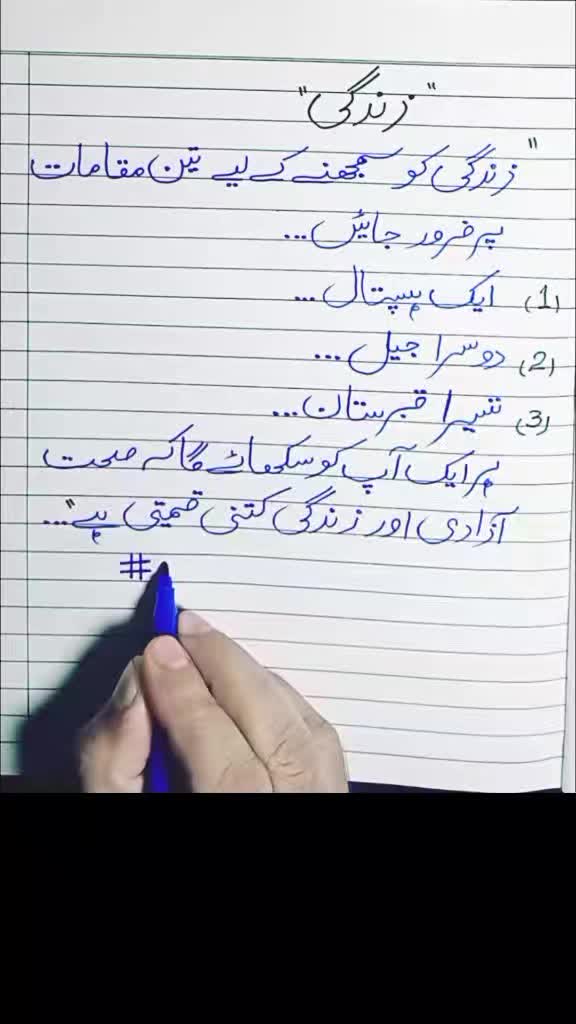 "زندگی"
"زندگی کو سمجھنے کے لیے تین مقامات
پر ضرور جائیں...
(1) ایک ہسپتال...
(2) دوسرا جیل...
(3) تیسرا قبرستان...
ہر ایک آپ کو سکھائے گا کہ صحت
آزادی اور زندگی کتنی قیمتی ہے"...
#